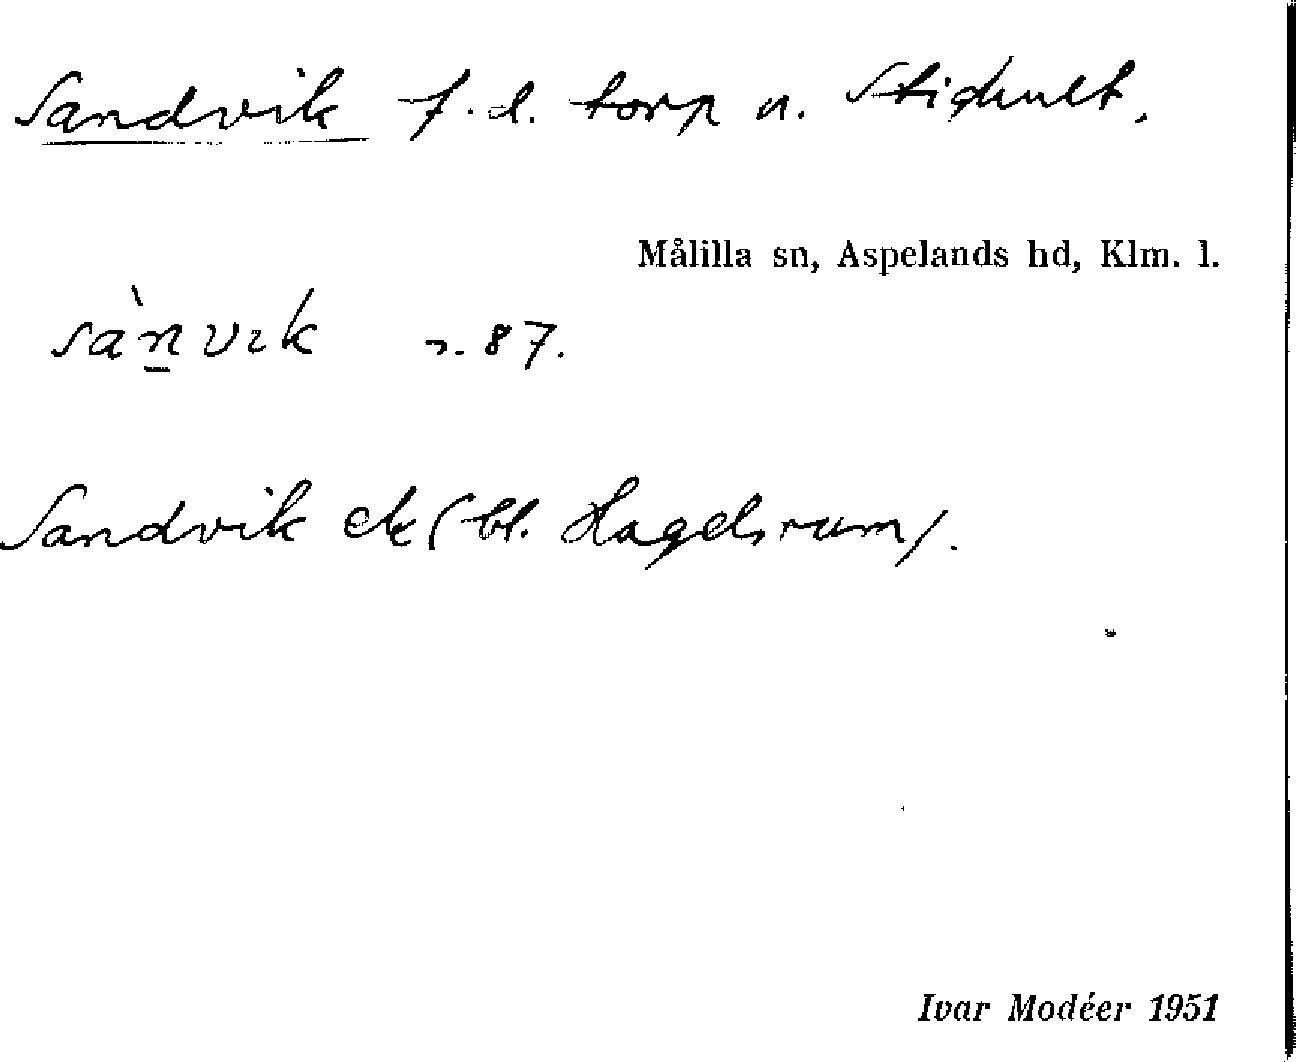 Sandvik f.d. torp u. Stighult.
Målilla sn, Aspelands hd, Klm. l.
sànvɪk s. 87.
Sandvik ek (bl. Hagelsrum).
Ivar Modéer 1951